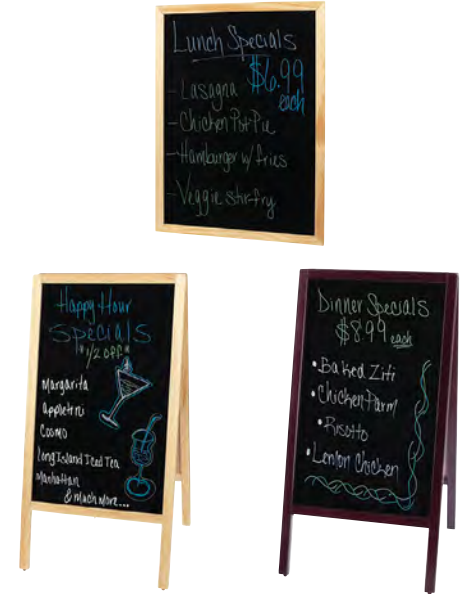 Lunch Specials
$6.99
each
- Lasagna
- Chicken Pot Pie
- Hamburger w/ fries
- Veggie stir-fry
Happy Hour
Specials
*1/2 OFF*
Margarita
appletini
Cosmo
Long Island Iced Tea
Manhattan
& much more...
Dinner Specials
$8.99 each
• Baked Ziti
• Chicken Parm
• Risotto
• Lemon Chicken